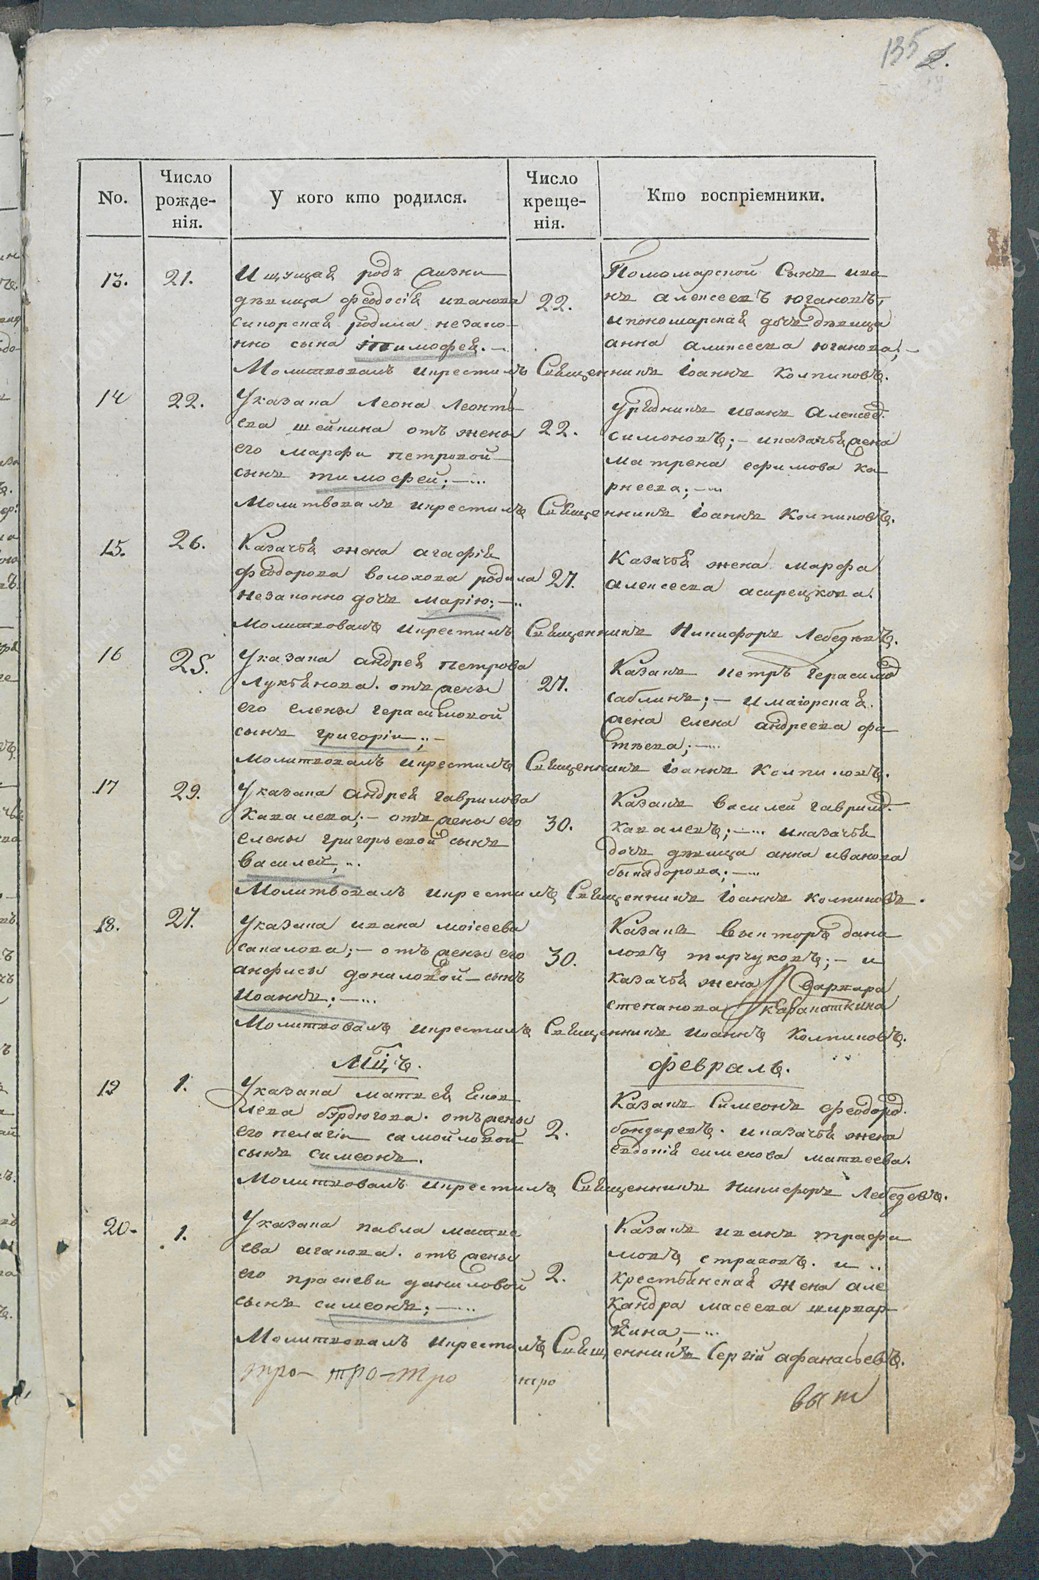 135 2.
No.
Число рожде-нія.
У кого кто родился.
Число креще-нія.
Кто воспріемники.
13.
21.
Ищущая родъ жизни
дѣвица феодосія иванова
сикорская родила незако
нно сына тимофея. —
22.
Пономарской Сынъ ива
нъ алексеевъ югановъ,
и пономарская дочь дѣвица
анна алексеева юганова; —
Молитвовалъ и крестилъ Священникъ Іоаннъ Колпиковъ.
14
22.
У казака Леона Леонть
ева шеикина отъ жены
его марфы петровой
сынъ тимофей; —...
22.
Урядникъ иванъ Алексеев.
симоновъ; — и казачья жена
матрена ефимова ко
рнеева; —..
Молитвовалъ и крестилъ Священникъ Іоаннъ Колпиковъ.
15.
26.
Казачья жена агафія
феодорова волохова родила
незаконно дочь марію; —..
27.
Казачья жена марфа
алексеева
Молитвовалъ и крестилъ Священникъ Никифоръ Лебедевъ.
16
25.
У казака андрея петрова
Лукьянова. отъ жены
его елены герасимовой
сынъ григорій; —
27.
Казакъ петръ герасимов
саблинъ; — и маіорская
жена елена андреева фа
тѣева; —...
Молитвовалъ и крестилъ Священникъ Іоаннъ Колпиковъ.
17
29.
У казака андрея гаврилова
кавалева; — отъ жены его
елены григорьевой сынъ
василей; ..
30.
Казакъ василей гаврилов.
кавалевъ; —... и казачья
дочь дѣвица анна иванова
Молитвовалъ и крестилъ Священникъ Іоаннъ колпиковъ.
18.
27.
У казака ивана моісеева
сапалова; — отъ жены его
анфисы даниловой — сынъ
Иоаннъ; —...
30.
Казакъ викторъ дани
ловъ тирчуковъ; — и
казачья жена варвара
степанова карапаткина
Молитвовалъ и крестилъ Священникъ Иоаннъ Колпиковъ.
Мцъ.
февраль.
19
1.
У казака матвея Емел
бурдюгова. отъ жены
его пелагіи самойловой
сынъ симеонъ.
2.
Казакъ Симеонъ феодоров.
бондаревъ. и казачья жена
евдокія семенова матвеева.
Молитвовалъ и крестилъ Священникъ Никифоръ Лебедевъ.
20.
1.
У казака павла матве
ева агапова. отъ жены
его прасковьи даниловой
сынъ симеонъ; —...
2.
Казакъ иванъ трофи
мовъ страховъ. и ..
крестьянская жена але
ксандра
кина; —...
Молитвовалъ и крестилъ Священникъ Сергій афанасьевъ.
тро — тро — тро тро
Донские Архивы